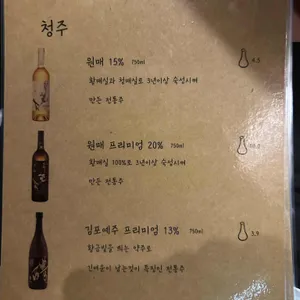 청주
원매 15% 750ml
4.5
황매실과 청매실로 3년이상 숙성시켜
만든 전통주
원매 프리미엄 20% 750ml
황매실 100%로 3년이상 숙성시켜
만든 전통주
김포예주 프리미엄 13% 750ml
3.9
황금쌀을 찌는 약주로
긴여운이 남는것이 특징인 전통주